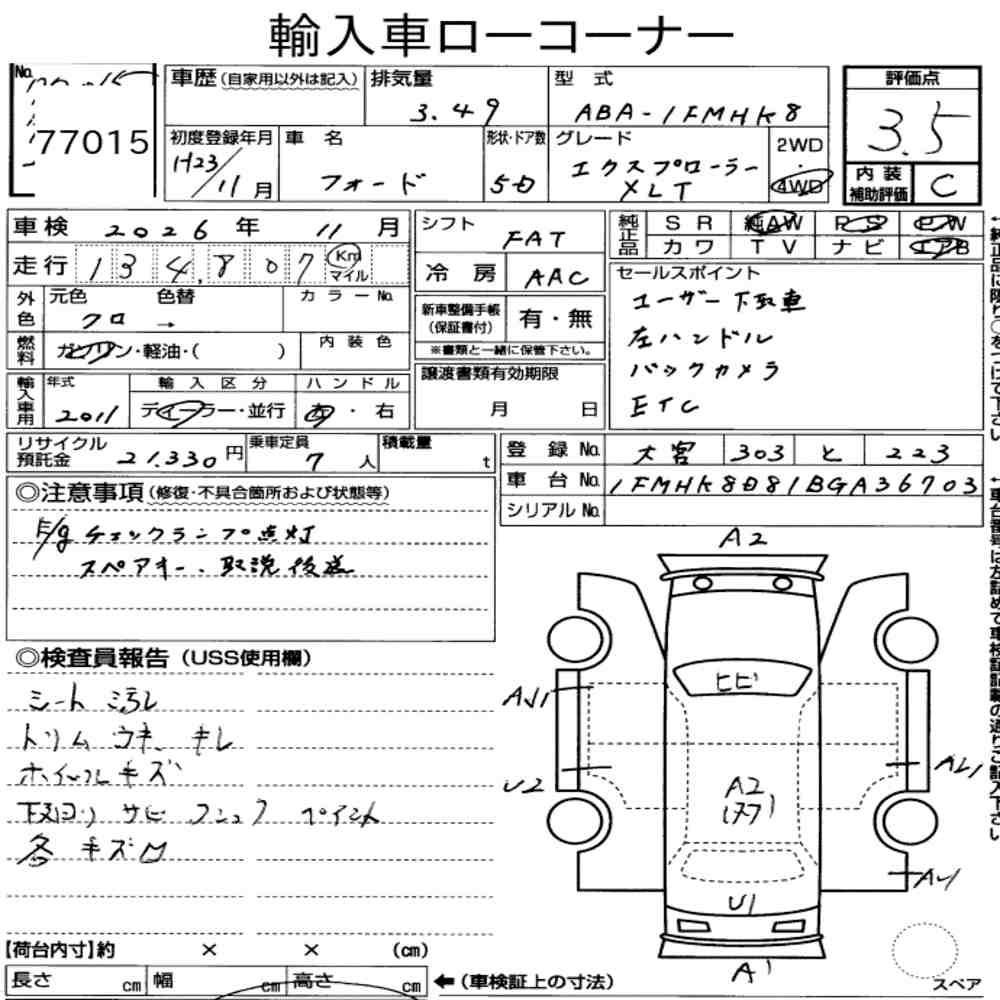 輸入車ローコーナー
No.
77015
車歴(自家用以外は記入)
排気量
3.49
型式
ABA-1FMHK8
評価点
3.5
初度登録年月
H23/11月
車名
フォード
形状・ドア数
5D
グレード
エクスプローラー
XLT
2WD
・
4WD
内装
補助評価
C
車検 2026年 11月
走行 134,807 Km マイル
外色
元色 クロ
色替 →
カラーNo.
燃料
ガソリン・軽油・( )
内装色
輸入車用
年式
2011
輸入区分
ディーラー・並行
ハンドル
左・右
シフト
FAT
冷房 AAC
新車整備手帳
(保証書付)
有・無
※書類と一緒に保管下さい。
譲渡書類有効期限
月 日
純正品
SR 純AW PS PW
カワ TV ナビ エアB
セールスポイント
ユーザー下取車
左ハンドル
バックカメラ
ETC
リサイクル
預託金
21.330円
乗車定員
7人
積載量
t
登録No. 大宮 303 と 223
車台No. 1FMHK8D81BGA36703
シリアルNo.
◎注意事項(修復・不具合箇所および状態等)
E/gチェックランプ点灯
スペアキー、取説後送
◎検査員報告(USS使用欄)
シート汚レ
トリムウキ、キレ
ホイールキズ
下回りサビ ペイント
各キズ凹
A2
ヒビ
AU1
U2
A2
AL1
U1
A1
スペア
【荷台内寸】約 × × (cm)
長さ cm 幅 cm 高さ cm
←(車検証上の寸法)
←純正品に限り○をつけて下さい
←車台番号は左詰めで車検証記載の通りご記入下さい